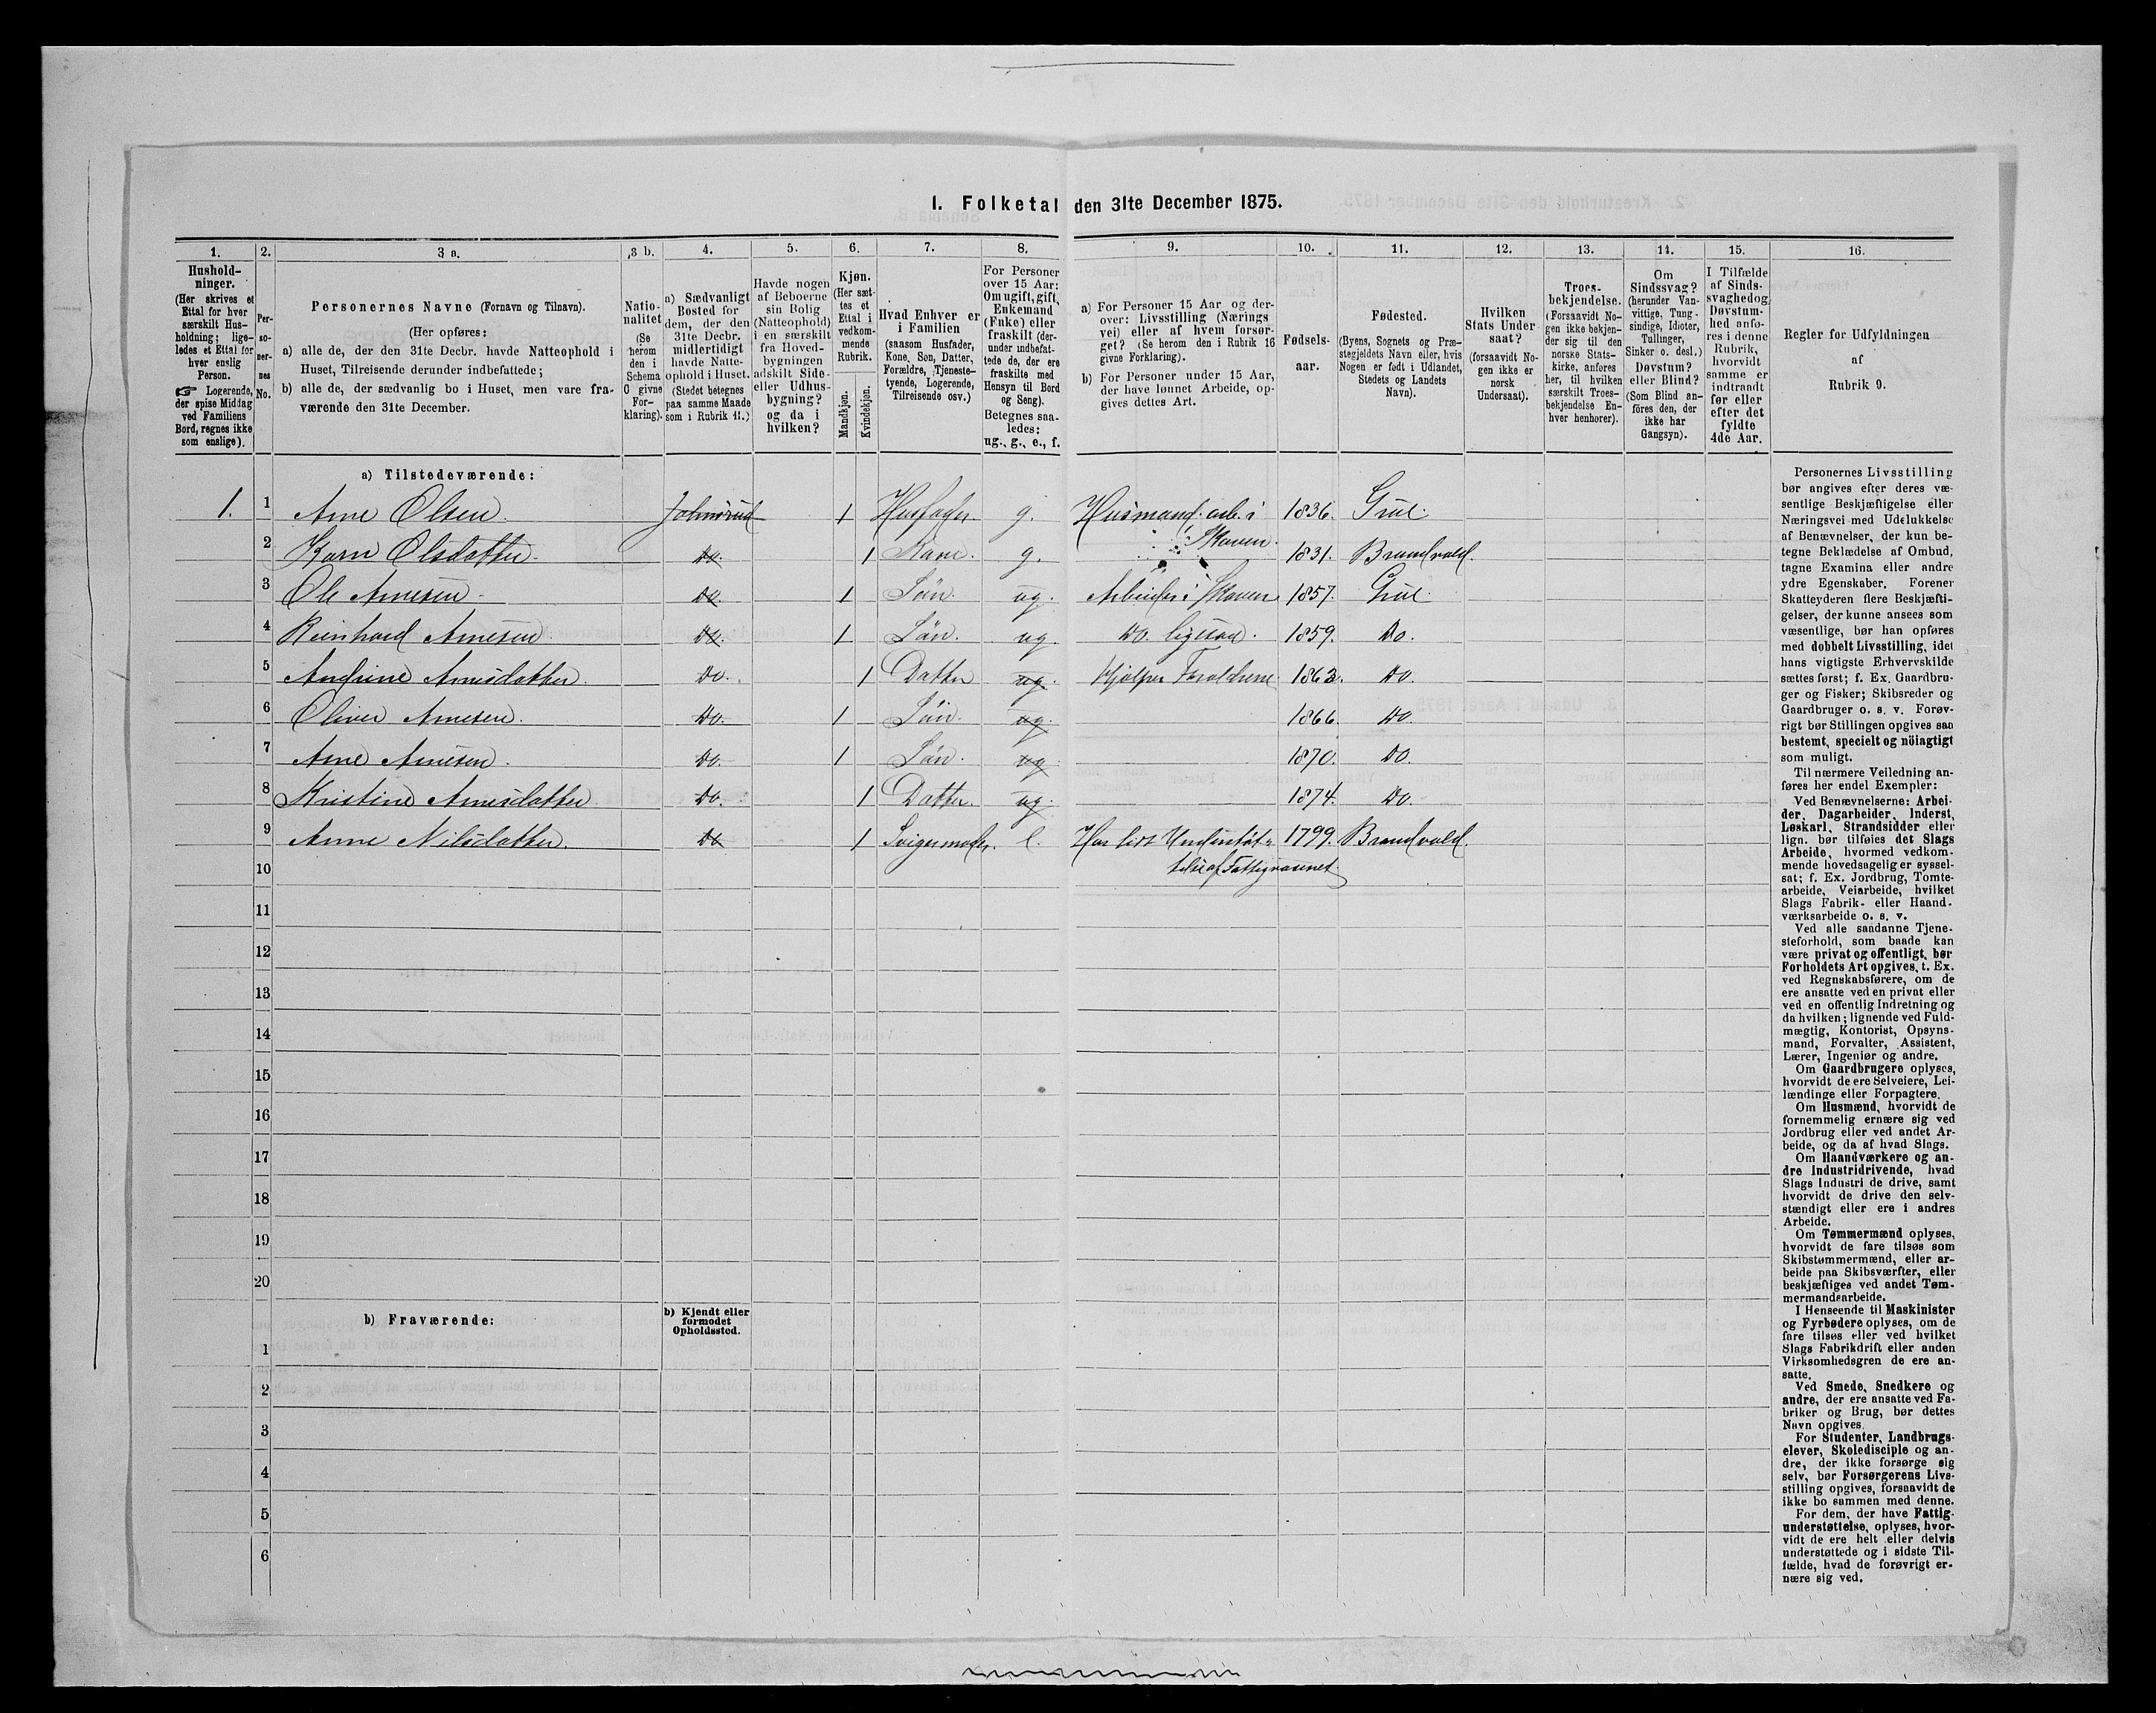 1. Folketal den 31te December 1875.
1. 2. 3 a. 3 b. 4. 5. 6. 7. 8. 9. 10. 11. 12. 13. 14. 15. 16.
Hushold-
ninger.
(Her skrives et
Ettal for hver
særskilt Hus-
holdning; lige-
ledes et Ettal for
hver enslig
Person.
☞ Logerende,
der spise Middag
ved Familiens
Bord, regnes ikke
som enslige).
Per-
so-
ner-
nes
No.
Personernes Navne (Fornavn og Tilnavn).
(Her opføres:
a) alle de, der den 31te Decbr. havde Natteophold i
Huset, Tilreisende derunder indbefattede;
b) alle de, der sædvanlig bo i Huset, men vare fra-
værende den 31te December.
Natio-
nalitet
(Se
herom
den i
Schema
O givne
For-
klaring).
a) Sædvanligt
Bosted for
dem, der den
31te Decbr.
midlertidigt
havde Natte-
ophold i Huset.
(Stedet betegnes
paa samme Maade
som i Rubrik 11.)
Havde nogen
af Beboerne
sin Bolig
(Natteophold)
i en særskilt
fra Hoved-
bygningen
adskilt Side-
eller Udhus-
bygning?
og da i
hvilken?
Kjøn.
(Her sæt-
tes et
Ettal i
vedkom-
mende
Rubrik.
Mandkjøn.
Kvindekjøn.
Hvad Enhver er
i Familien
(saasom Husfader,
Kone, Søn, Datter,
Forældre, Tjeneste-
tyende, Logerende,
Tilreisende osv.)
For Personer
over 15 Aar:
Om ugift, gift,
Enkemand
(Enke) eller
fraskilt (der-
under indbefat-
tede de, der ere
fraskilte med
Hensyn til Bord
og Seng).
Betegnes saa-
ledes:
ug., g., e., f.
a) For Personer 15 Aar og der-
over: Livsstilling (Nærings
vei) eller af hvem forsør-
get? (Se herom den i Rubrik 16
givne Forklaring).
b) For Personer under 15 Aar,
der have lønnet Arbeide, op-
gives dettes Art.
Fødsels-
aar.
Fødested.
(Byens, Sognets og Præ-
stegjeldets Navn eller, hvis
Nogen er født i Udlandet,
Stedets og Landets
Navn).
Hvilken
Stats Under
saat?
(forsaavidt No-
gen ikke er
norsk
Undersaat).
Troes-
bekjendelse.
(Forsaavidt No-
gen ikke bekjen-
der sig til den
norske Stats-
kirke, anføres
her, til hvilken
særskilt Troes-
bekjendelse En-
hver henhører).
Om
Sindssvag?
(herunder Van-
vittige, Tung-
sindige, Idioter,
Tullinger,
Sinker o. desl.)
Døvstum?
eller Blind?
(Som Blind an-
føres den, der
ikke har
Gangsyn).
I Tilfælde
af Sinds-
svaghedog
Døvstum-
hed anfø-
res i denne
Rubrik,
hvorvidt
samme er
indtraadt
før eller
efter det
fyldte
4de Aar.
Regler for Udfyldningen
af
Rubrik 9.
a) Tilstedeværende:
1. 1 Arne Olsen. Johnsrud 1 Husfader. g. Husmand. arb. i Skoven. 1836. Grue.
2 Karn Olsdatter. Do. 1 Kone. g. 1831. Brandvold.
3 Ole Arnesen. Do. 1 Søn. ug. Arbeider i Skoven 1857. Grue.
4 Reinhard Arnesen. Do. 1 Søn. ug. Do. ligesaa. 1859. Do.
5 Andrine Arnesdatter. Do. 1 Datter ug. Hjælper Forældrene. 1863. Do.
6 Oliver Arnesen. Do. 1 Søn. ug. 1866. Do.
7 Arne Arnesen. Do. 1 Søn. ug. 1870. Do.
8 Kristine Arnesdatter Do. 1 Datter. ug. 1874. Do.
9 Anne Nilsdatter. Do 1 Svigermoder. e. Har lidt Understøt- 1799. Brandvold.
telse af Fattigvæsenet.
10
11
12
13
14
15
16
17
18
19
20
b) Fraværende:
b) Kjendt eller
formodet
Opholdssted.
1
2
3
4
5
6
Personernes Livsstilling
bør angives efter deres væ-
sentlige Beskjæftigelse eller
Næringsvei med Udelukkelse
af Benævnelser, der kun be-
tegne Beklædelse af Ombud,
tagne Examina eller andre
ydre Egenskaber. Forener
Skatteyderen flere Beskjæfti-
gelser, der kunne ansees som
væsentlige, bør han opføres
med dobbelt Livsstilling, idet
hans vigtigste Erhvervskilde
sættes først; f. Ex. Gaardbru-
ger og Fisker; Skibsreder og
Gaardbruger o. s. v. Forøv-
rigt bør Stillingen opgives saa
bestemt, specielt og nöiagtigt
som muligt.
Til nærmere Veiledning an-
føres her endel Exempler:
Ved Benævnelserne: Arbei-
der, Dagarbeider, Inderst,
Løskarl, Strandsidder eller
lign. bør tilføies det Slags
Arbeide, hvormed vedkom-
mende hovedsagelig er syssel-
sat; f. Ex. Jordbrug, Tomte-
arbeide, Veiarbeide, hvilket
Slags Fabrik- eller Haand-
værksarbeide o. s. v.
Ved alle saadanne Tjene-
steforhold, som baade kan
være privat og offentligt, bør
Forholdets Art opgives, t. Ex.
ved Regnskabsførere, om de
ere ansatte ved en privat eller
ved en offentlig Indretning og
da hvilken; lignende ved Fuld-
mægtig, Kontorist, Opsyns-
mand, Forvalter, Assistent,
Lærer, Ingeniør og andre.
Om Gaardbrugere oplyses,
hvorvidt de ere Selveiere, Lei-
lændinge eller Forpagtere.
Om Husmænd, hvorvidt de
fornemmelig ernære sig ved
Jordbrug eller ved andet Ar-
beide, og da af hvad Slags.
Om Haandværkere og an-
dre Industridrivende, hvad
Slags Industri de drive, samt
hvorvidt de drive den selv-
stændigt eller ere i andres
Arbeide.
Om Tømmermænd oplyses,
hvorvidt de fare tilsøs som
Skibstømmermænd, eller ar-
beide paa Skibsværfter, eller
beskjæftiges ved andet Tøm-
mermandsarbeide.
I Henseende til Maskinister
og Fyrbødere oplyses, om de
fare tilsøs eller ved hvilket
Slags Fabrikdrift eller anden
Virksomhedsgren de ere an-
satte.
Ved Smede, Snedkere og
andre, der ere ansatte ved Fa-
briker og Brug, bør dettes
Navn opgives.
For Studenter, Landbrugs-
elever, Skoledisciple og an-
dre, der ikke forsørge sig
selv, bør Forsørgerens Livs-
stilling opgives, forsaavidt de
ikke bo sammen med denne.
For dem, der have Fattig-
understøttelse, oplyses, hvor-
vidt de ere helt eller delvis
understøttede og i sidste Til-
fælde, hvad de forøvrigt er-
nære sig ved.